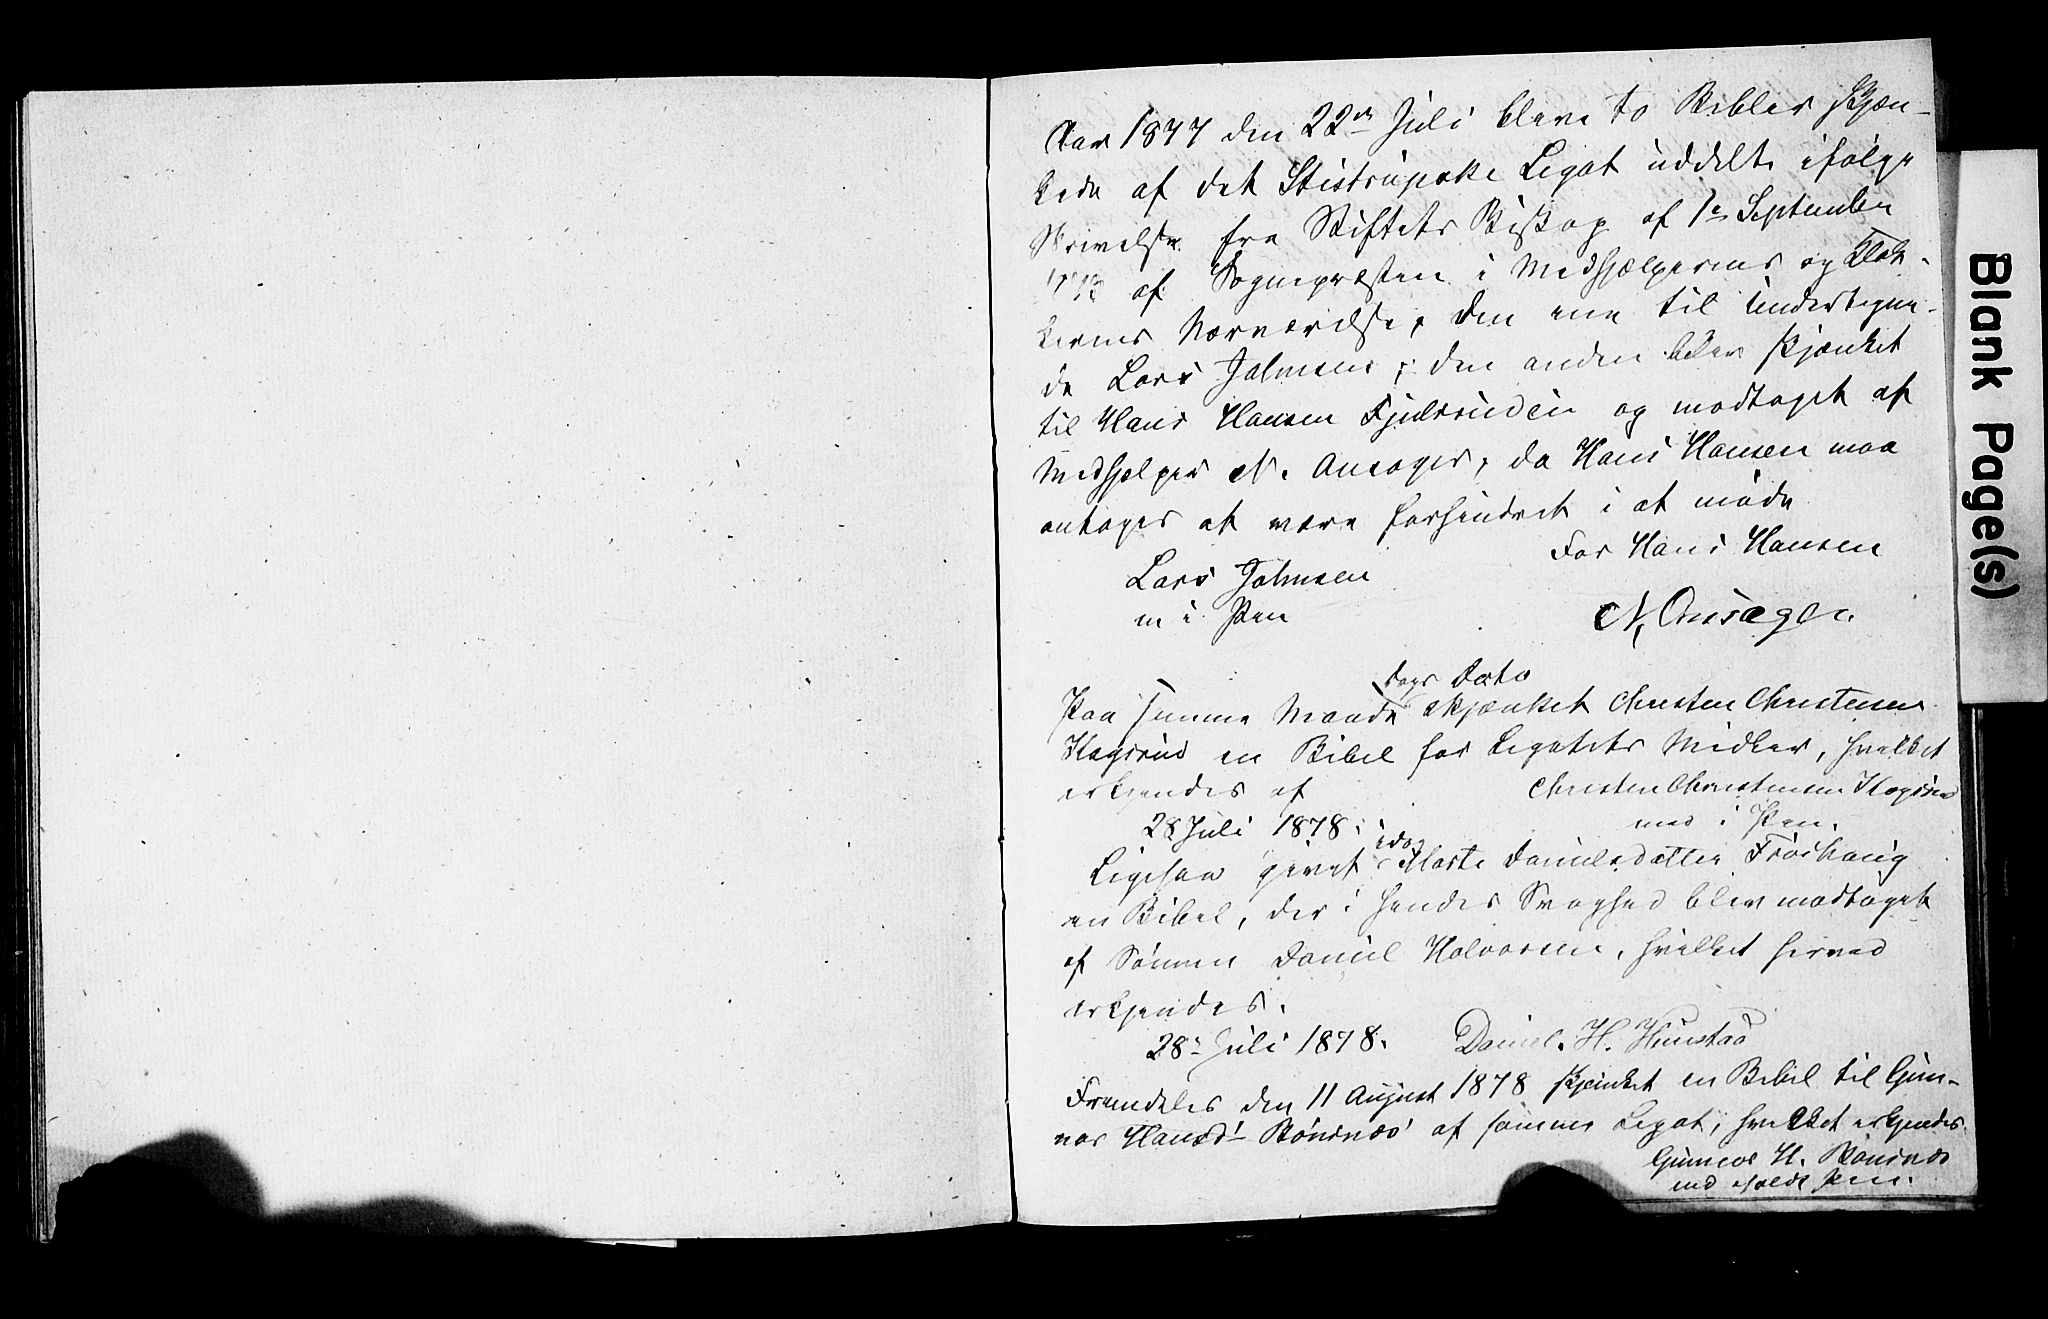 Aar 1877 den 22de Juli bleve to Bibler skjæn-
kede af det Stistrupske Legat uddelte ifølge
Skrivelse fra Stiftets Biskop af 1e September
af Sognepræsten i Medhjælperens og Klok-
kerens Nærværelse, den ene til Undertegne-
de Lars Johnsen; den anden blev skjænket
til Hans Hansen og modtaget af
Medhjælper N. Ansager, da Hans Hansen maa
antages at være forhindret i at møde
For Hans Hansen
Lars Johnsen
m i Pen
N. Ansager.
dags Dato
Paa samme Maade skjænket Christen Christensen
Hagsrud en Bibel for Legatets Midler, hvilket
erkjendes af
Christen Christensen Hagsrud
med i Pen.
28 Juli 1878.
idag
Ligesaa givet Marte Danielsdatter Frøshaug
en Bibel, der i hendes Svaghed blev modtaget
af Sønnen Daniel Halvorsen, hvilket herved
erkjendes.
28e Juli 1878. Daniel. H. Hunstad
Fremdeles den 11 August 1878 skjænket en Bibel til Gun-
nor Hansd. Bønsnæs af samme Legat, hvilket erkjendes.
Gunnor H. Bønsnæs
med iholdt Pen.
Blank Page(s)